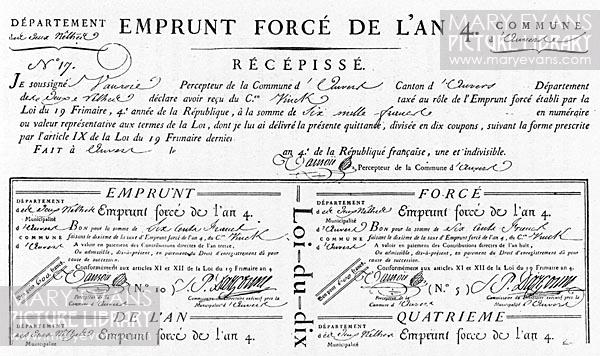 DÉPARTEMENT
des Deux Nèthes
EMPRUNT FORCÉ DE L'AN 4.
COMMUNE
d'Anvers
RÉCÉPISSÉ.
N.° 17.
JE soussigné Percepteur de la Commune d'Anvers Canton d'Anvers Département
des Deux Nèthes déclare avoir reçu du C.en Vinck taxé au rôle de l'Emprunt forcé établi par la
Loi du 19 Frimaire, 4.e année de la République, à la somme de Six mille francs en numéraire
ou valeur représentative aux termes de la Loi, dont je lui ai délivré la présente quittance, divisée en dix coupons, suivant la forme prescrite
par l'article IX de la Loi du 19 Frimaire dernier.
FAIT à Anvers le an 4.e de la République française, une et indivisible.
Percepteur de la Commune d'Anvers
EMPRUNT
DÉPARTEMENT
des Deux Nèthes
Emprunt forcé de l'an 4.
Municipalité
d'Anvers
BON pour la somme de Six Cents francs
COMMUNE
d'Anvers
faisant le dixième de la taxe d'Emprunt forcé de l'an 4, du C.en Vinck
A valoir en paiement des Contributions directes de l'an
Ou admissible, dès-à-présent, en paiement de Droit d'enregistrement dû pour
cause de succession.
Conformément aux articles XI et XII de la Loi du 19 Frimaire an 4
Bon pour 600 francs
(N.° 10)
Percepteur de la
Commune d'Anvers
Commissaire du Directoire exécutif près la
Municipalité d'Anvers
Loi-du-dix
FORCÉ
DÉPARTEMENT
des Deux Nèthes
Emprunt forcé de l'an 4.
Municipalité
d'Anvers
BON pour la somme de Six Cents francs
COMMUNE
d'Anvers
faisant le dixième de la taxe d'Emprunt forcé de l'an 4, du C.en Vinck
A valoir en paiement des Contributions directes de l'an huit,
Ou admissible, dès-à-présent, en paiement de Droit d'enregistrement dû pour
cause de succession.
Conformément aux articles XI et XII de la Loi du 19 Frimaire an 4
(N.° 5)
Percepteur de la
Commune d'Anvers
Commissaire du Directoire exécutif près la
Municipalité d'Anvers
DE L'AN
DÉPARTEMENT
des Deux Nèthes
Emprunt forcé de l'an 4.
QUATRIEME
DÉPARTEMENT
des Deux Nèthes
Emprunt forcé de l'an 4.
MARY EVANS
PICTURE LIBRARY
maryevans.com